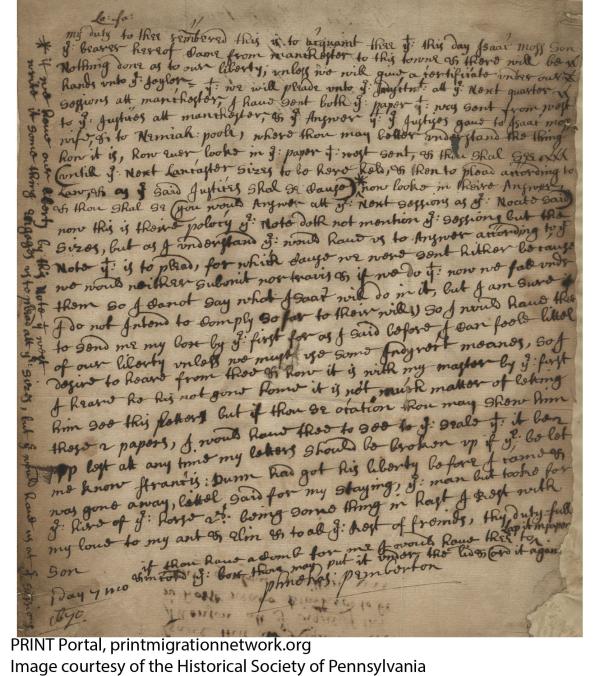 Lo: fa:
my duty to thee rembered this is to acquant thee yt this day Isaac moss son
ye bearer hereof Came from manchester to this towne & there will be
Nothing done as to our liberty, unless we will give a certificate under our
hands unto ye Jaylor yt we will pleade unto ye at ye Next quarter
sessions att manchester, I have sent both ye paper yt was sent from
to ye Justies att manchester, & ye Answer yt ye Justies gave to Isaac moss
wife, & to Nemiah: poole, where thou may better understand the thing
how it is, how ever looke in ye paper yt west sent, & thou shal
(untill ye Next Lancaster sizes to be here & then to plead according to
Law, & as ye said Justies shal se Cause) now looke in theire Answer
& thou shal se (you would Answer att ye Next sessions as ye Noate said
now this is theire policy ye Note doth not mention ye sessions but the
sizes, but as I understand ye would have us to Answer according to ye
Note yt is to plead, for which Cause we were sent hither because
we would neither submit nor travis & if we do yt now we fall under
them so I Canot say what Isaac will do in it, but I am sure
I do not Intend to Comply so far to their wills) so I would have thee
to send me my box by ye first for as I said before I Can feele littel
of our liberty unless we must use some Indyrect meanes, so I
desire to heare from thee & how it is with my master by ye first
I heare he his not gone home it is not much matter of leting
him see this letters but if thou se ocation thou may shew him
these 2 papers, I would have thee to see to ye seale yt it ben
up lest at any time my letters should be broken up if ye be let
me know ffrancis: Dunn had got his liberty before I came &
was gone away, littel said for my staying, ye man but tooke for
ye hire of ye horse 2s being some thing in hast I Rest with
my love to my ant & Elin & to all ye Rest of freinds, thy duty full
son
if thou have a Comb for me I would have thee to lap it in paper
& ye box thou may put it under the lid & Cord it again
phinehas pemberton
1 day 7 mo
1670
* if we have our liberty by this Note yt west
write it some thing us to plead att ye sizes, but ye would have us at ye
PRINT Portal, printmigrationnetwork.org
Image courtesy of the Historical Society of Pennsylvania